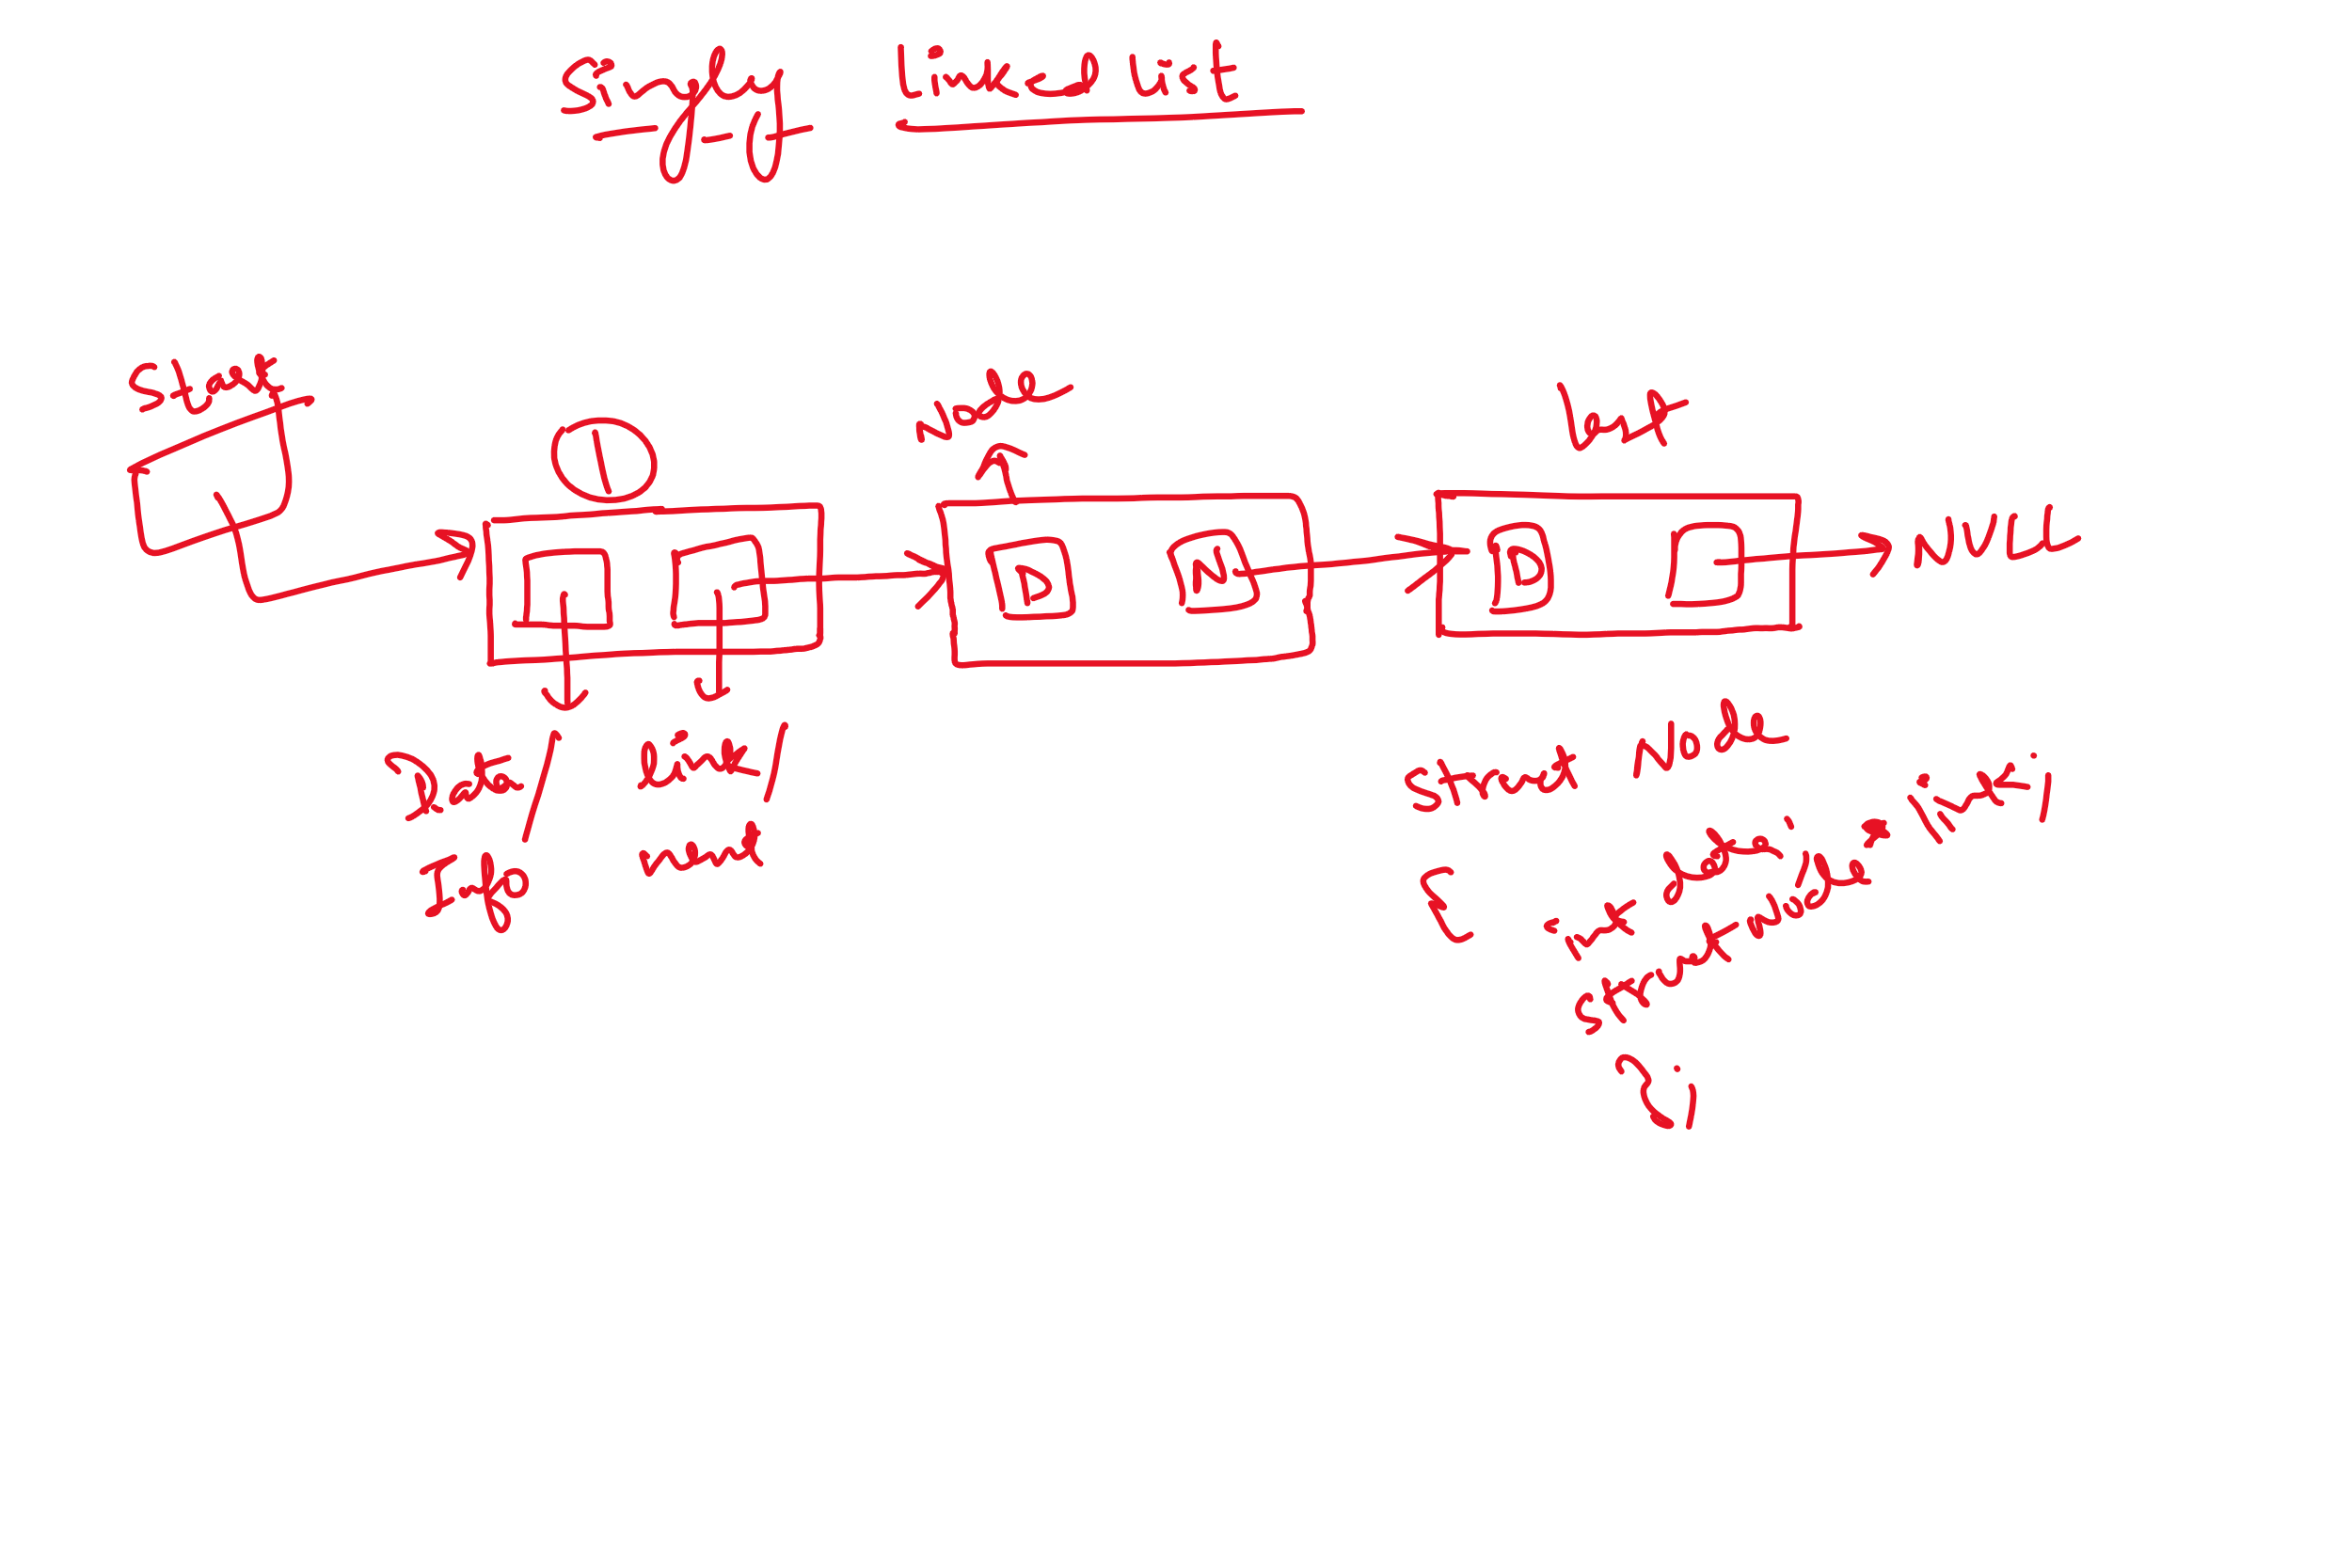 Singly Linked list
Start
1
node
last
D
N
D
NULL
Data/
Info
link/
next
struct Node
{
int data;
struct node * link;
};